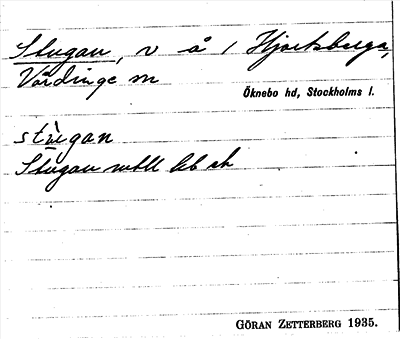 Stugan, v å / Hjortsberga,
Vårdinge sn
Öknebo hd, Stockholms l.
stùgan
Stugan
GÖRAN ZETTERBERG 1935.